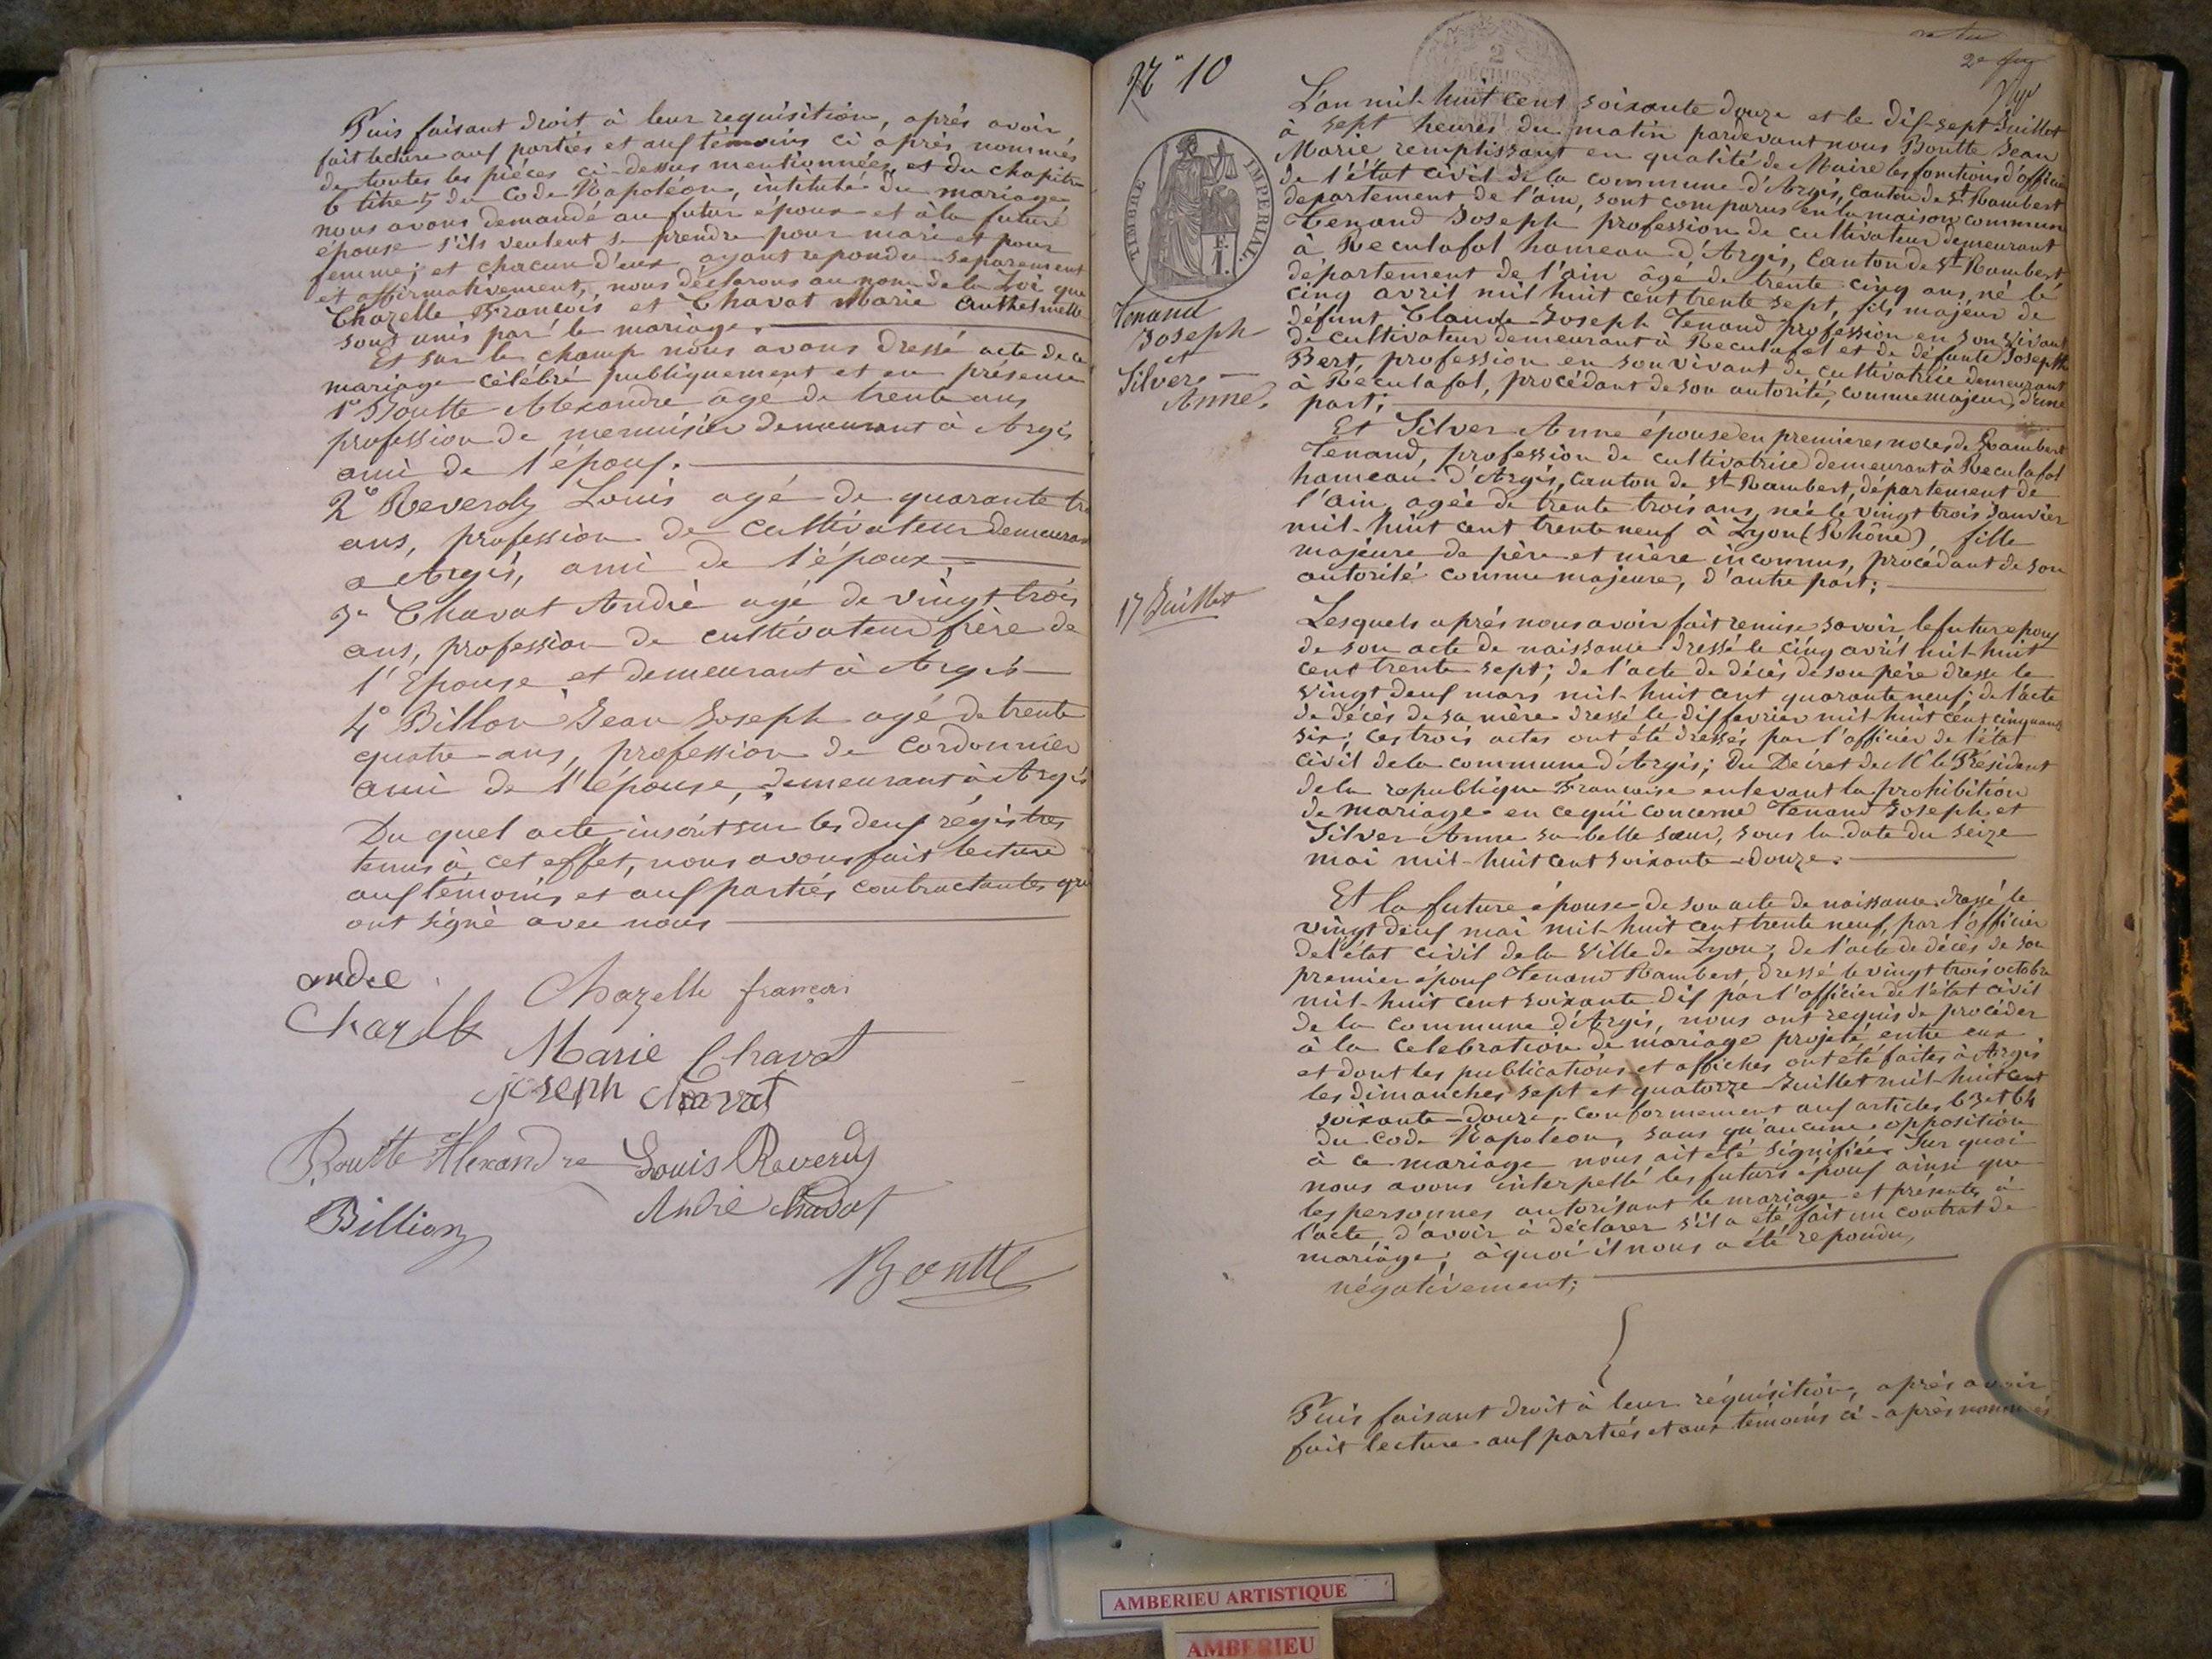 Puis faisant droit à leur requisition, après avoir
fait lecture aux parties et aux témoins ci après nommés
de toutes les pièces ci-dessus mentionnées, et du chapitre
6 titre 5 du Code Napoléon, intitulé du mariage
nous avons demandé au futur époux et à la future
épouse s'ils veulent se prendre pour mari et pour
femme; et chacun d'eux ayant repondu separement
et affirmativement, nous déclarons au nom de la Loi que
Chazelle François et Chavat Marie Anthelmette
sont unis par le mariage.
Et sur le champ nous avons dressé acte de ce
mariage célébré publiquement et en présence
1° Boutte Alexandre âgé de trente ans
profession de menuisier demeurant à Argis
ami de l'époux.
2° Reverdy Louis agé de quarante tro
ans, profession de cultivateur demeurant
a Argis, ami de l'époux,
3° Chavat André agé de vingt trois
ans, profession de cultivateur frère de
l'Epouse et demeurant à Argis
4° Billon Jean Joseph agé de trente
quatre ans, profession de cordonnier
ami de l'épouse, demeurant à Argis
Du quel acte, inscrit sur les deux régistres
tenus à cet effet, nous avons fait lecture
aux témoins et aux parties contractantes qui
ont signé avec nous
andre
Chazelle
Chazelle françois
Marie Chavat
joseph chavat
Boutte Alexandre Louis Reverdy
Billion André chavat
Boutte
N° 10
2
DÉCIMES
1871
TIMBRE IMPERIAL
1 F.
Tenand
Joseph
et
Silver
Anne.
17 Juillet
L'an mil-huit cent soixante douze et le dix-sept Juillet
à sept heures du matin pardevant nous Boutte Jean
Marie remplissant en qualité de Maire les fonctions d'officier
de l'état civil de la commune d'Argis, canton de St Rambert
departement de l'ain, sont comparus en la maison commune
Tenand Joseph profession de cultivateur demeurant
à Reculafol hameau d'Argis, Canton de St Rambert
département de l'ain âgé de trente cinq ans, né le
cinq avril mil huit cent trente sept, fils majeur de
défunt Claude Joseph Tenand profession en son vivant
de cultivateur demeurant à Reculafol et de défunte Josephte
Bert, profession en son vivant de cultivatrice demeurant
à Réculafol, procédant de son autorité, comme majeur, d'une
part;
Et Silver Anne épouse en premieres noces de Rambert
Tenand, profession de cultivatrice demeurant à Reculafol
hameau d'Argis, Canton de St Rambert, département de
l'ain, agée de trente trois ans, née le vingt trois Janvier
mil-huit cent trente neuf à Lyon (Rhône), fille
majeure de père et mère inconnus, procédant de son
autorité comme majeure, d'autre part;
Lesquels après nous avoir fait remise savoir le futur epoux
de son acte de naissance dressé le cinq avril mil huit
cent trente sept; de l'acte de décès de son père dressé le
vingt deux mars mil-huit cent quarante neuf; de l'acte
de décès de sa mère dressé le dix fevrier mil-huit cent cinquante
six; ces trois actes ont été dressés par l'officier de l'état
civil de la commune d'Argis; du Décret de Mr le Président
de la republique Francaise enlevant la prohibition
de mariage en ce qui concerne Tenand Joseph et
Silver Anne sa belle sœur, sous la date du seize
mai mil-huit cent soixante-douze.
Et la future épouse de son acte de naissance dressé le
vingt deux mai mil-huit cent trente neuf, par l'officier
de l'état civil de la Ville de Lyon; de l'acte de décès de son
premier époux Tenand Rambert, dressé le vingt trois octobre
mil-huit cent soixante dix par l'officier de l'état civil
de la commune d'Argis, nous ont requis de procéder
à la celebration de mariage projeté entre eux
et dont les publications et affiches ont été faites à Argis
les dimanches sept et quatorze Juillet mil-huit cent
soixante-douze, conformement aux articles 63 et 64
du code Napoleon, sans qu'aucune opposition
à ce mariage nous ait été signifiée. Sur quoi
nous avons interpellé les futurs époux ainsi que
les personnes autorisant le mariage et présentes à
l'acte, d'avoir à déclarer s'il a été fait un contrat de
mariage; à quoi il nous a été repondu,
négativement;
Puis faisant droit à leur réquisition, après avoir
fait lecture aux parties et aux témoins ci-après nommés
AMBERIEU ARTISTIQUE
AMBERIEU